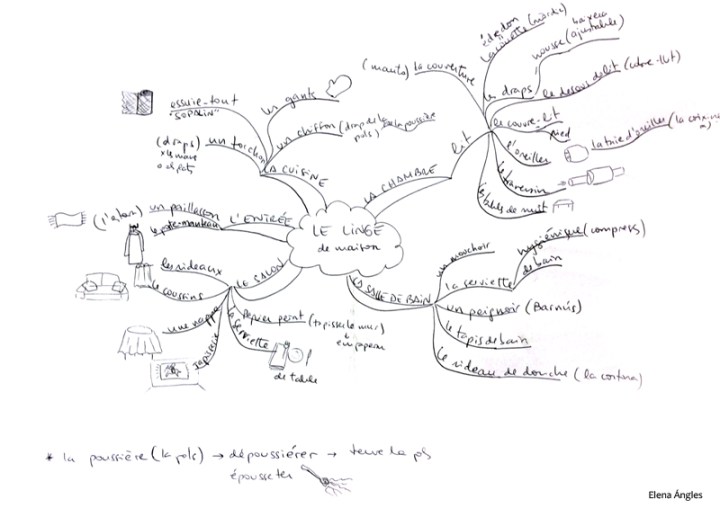 LE LINGE
de maison
LA CUISINE
essuie-tout
"SOPALIN"
les gants
un chiffon (drap de la pols)
la poussière
un torchon
(draps)
L'ENTRÉE
un paillasson
le porte-manteau
LE SALON
les rideaux
les coussins
une nappe
tapisserie
la serviette
de table
papier peint (tapisser le mur)
empapelar
LA CHAMBRE
lit
(manta) la couverture
édredon
la couette (nòrdic)
les draps
housse (
ajustable)
le dessous de lit (
le couvre-lit
l'oreiller
la taie d'oreiller
le traversin
les tables de nuit
LA SALLE DE BAIN
un mouchoir
la serviette
hygiénique (compresa)
de bain
un peignoir (Barnús)
le tapis de bain
le rideau de douche (la cortina)
* la poussière (la pols) → dépoussiérer → treure la pols
épousseter
Elena Ángles